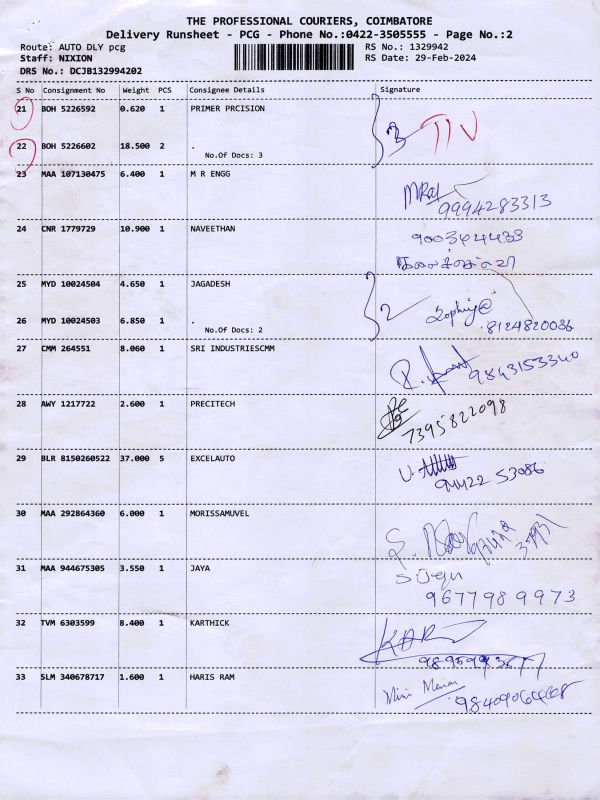 THE PROFESSIONAL COURIERS, COIMBATORE
Delivery Runsheet - PCG - Phone No.:0422-3505555 - Page No.:2
Route: AUTO DLY pcg RS No.: 1329942
Staff: NIXION RS Date: 29-Feb-2024
DRS No.: DCJB132994202
S No Consignment No Weight PCS Consignee Details Signature
21 BOH 5226592 0.620 1 PRIMER PRCISION
22 BOH 5226602 18.500 2 .
No.Of Docs: 3
23 MAA 107130475 6.400 1 M R ENGG
9994283313
24 CNR 1779729 10.900 1 NAVEETHAN
25 MYD 10024504 4.650 1 JAGADESH
2
26 MYD 10024503 6.850 1 .
8124820036
No.Of Docs: 2
27 CMM 264551 8.060 1 SRI INDUSTRIESCMM
9843153340
28 AWY 1217722 2.600 1 PRECITECH
7395822098
29 BLR 8150260522 37.000 5 EXCELAUTO
30 MAA 292864360 6.000 1 MORISSAMUVEL
31 MAA 944675305 3.550 1 JAYA
9677989973
32 TVM 6303599 8.400 1 KARTHICK
33 SLM 340678717 1.600 1 HARIS RAM